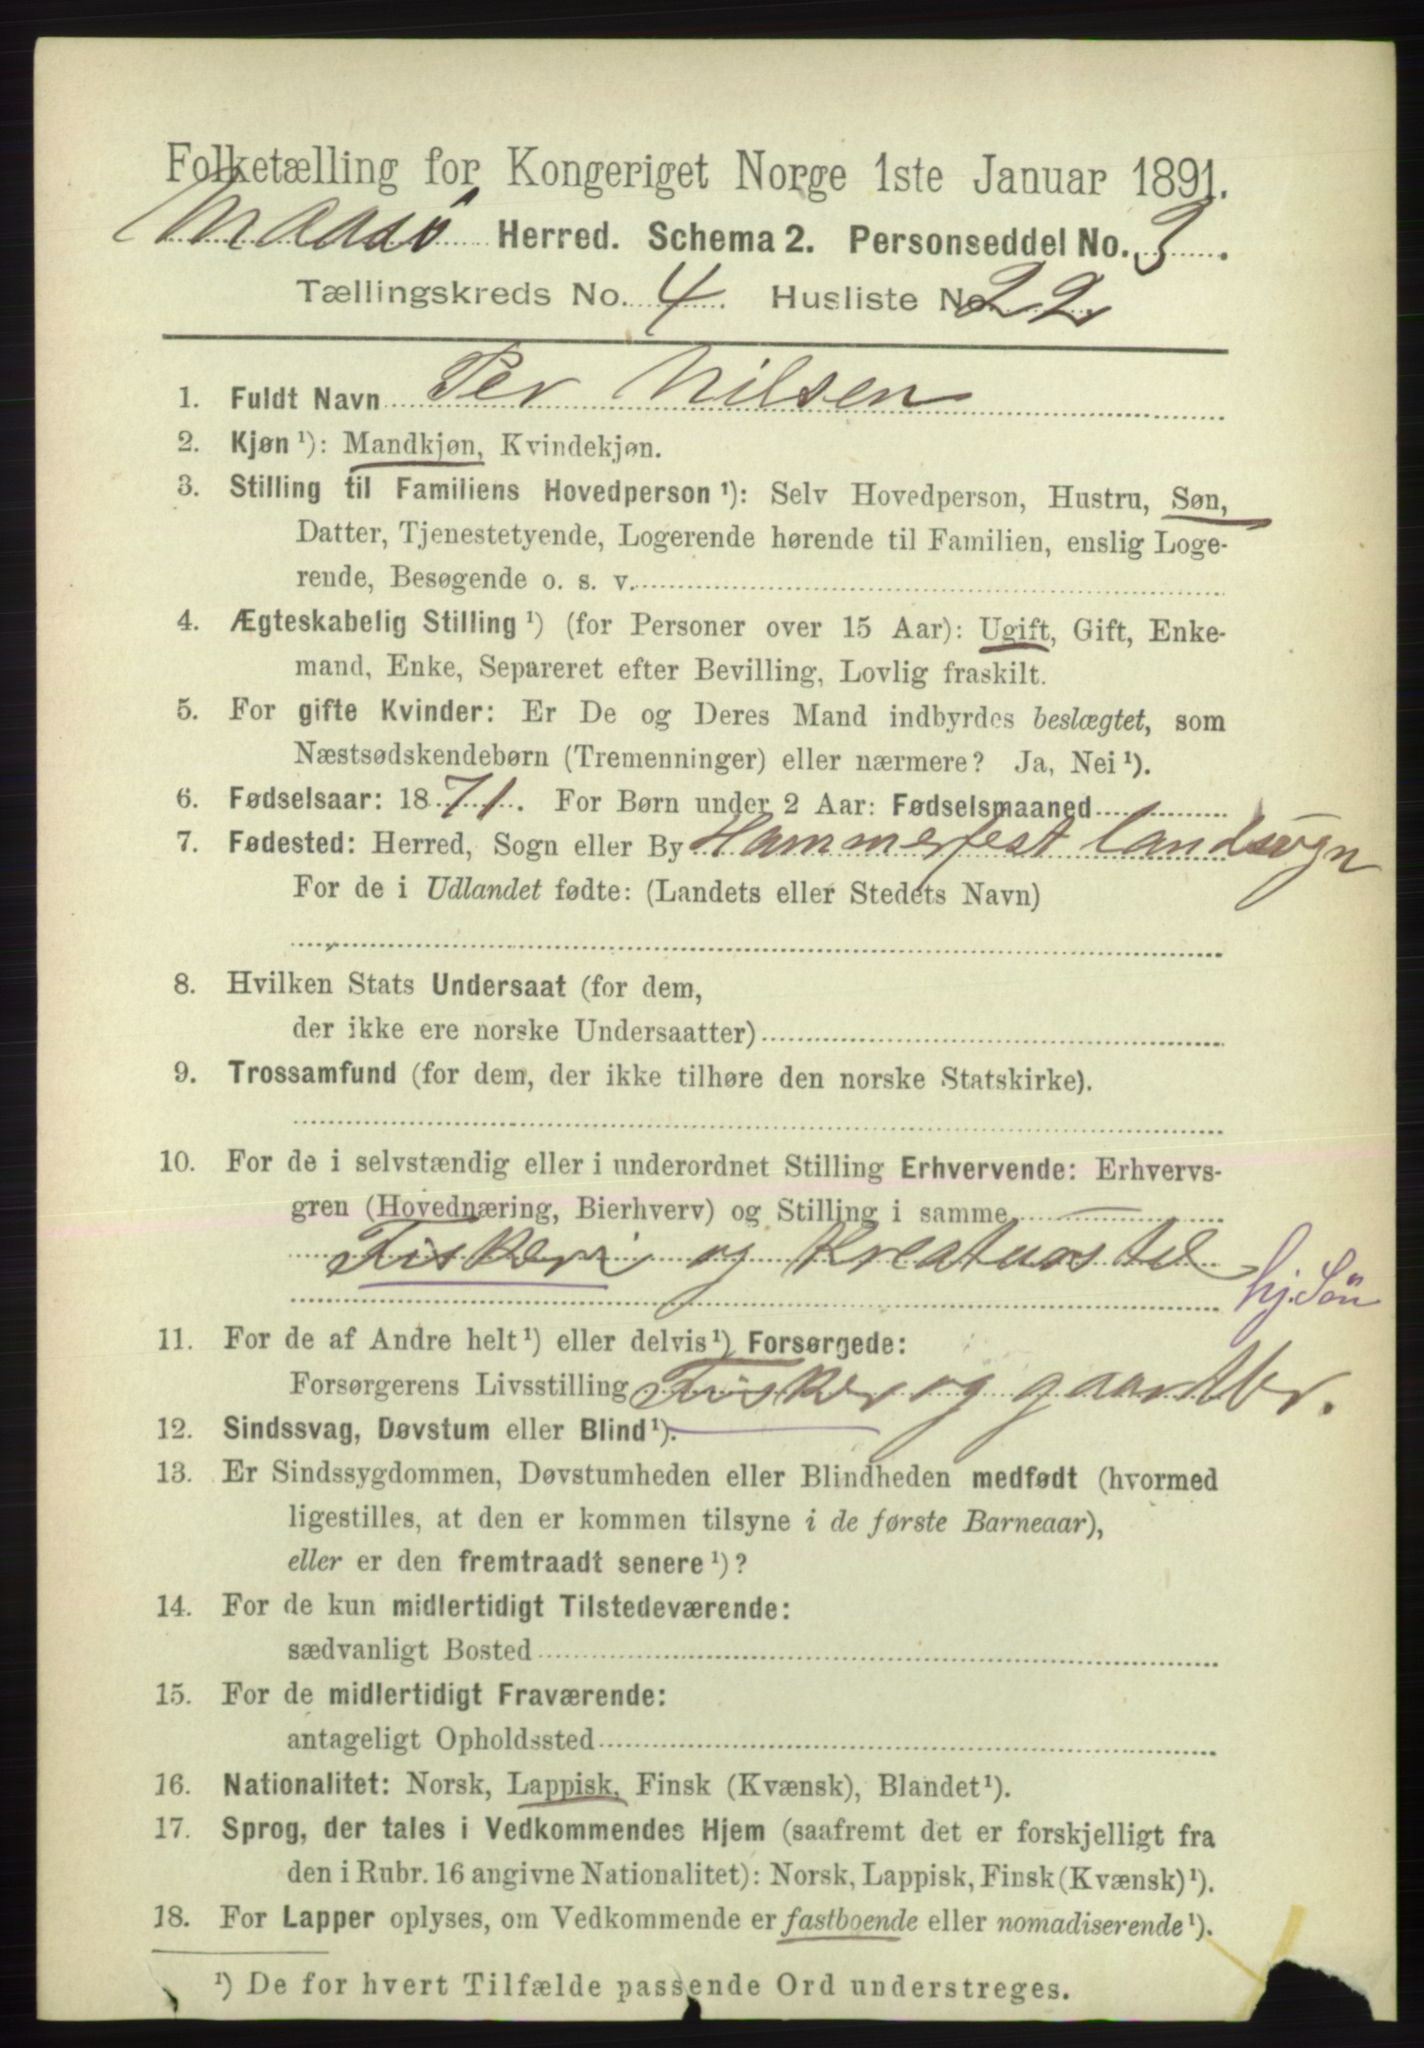 Folketælling for Kongeriget Norge 1ste Januar 1891.
Maasø Herred. Schema 2. Personseddel No. 3.
Tællingskreds No. 4. Husliste No. 22
1. Fuldt Navn Per Nilsen
2. Kjøn ¹): Mandkjøn, Kvindekjøn.
3. Stilling til Familiens Hovedperson ¹): Selv Hovedperson, Hustru, Søn,
Datter, Tjenestetyende, Logerende hørende til Familien, enslig Loge-
rende, Besøgende o. s. v.
4. Ægteskabelig Stilling ¹) (for Personer over 15 Aar): Ugift, Gift, Enke-
mand, Enke, Separeret efter Bevilling, Lovlig fraskilt.
5. For gifte Kvinder: Er De og Deres Mand indbyrdes beslægtet, som
Næstsødskendebørn (Tremenninger) eller nærmere? Ja, Nei ¹).
6. Fødselsaar: 1871. For Børn under 2 Aar: Fødselsmaaned
7. Fødested: Herred, Sogn eller By Hammerfest landsogn
For de i Udlandet fødte: (Landets eller Stedets Navn)
8. Hvilken Stats Undersaat (for dem,
der ikke ere norske Undersaatter)
9. Trossamfund (for dem, der ikke tilhøre den norske Statskirke).
10. For de i selvstændig eller i underordnet Stilling Erhvervende: Erhvervs-
gren (Hovednæring, Bierhverv) og Stilling i samme
Fiskeri og Kreaturstel
hj. Søn
11. For de af Andre helt ¹) eller delvis ¹) Forsørgede:
Forsørgerens Livsstilling Fisker og gaardbr.
12. Sindssvag, Døvstum eller Blind ¹).
13. Er Sindssygdommen, Døvstumheden eller Blindheden medfødt (hvormed
ligestilles, at den er kommen tilsyne i de første Barneaar),
eller er den fremtraadt senere ¹)?
14. For de kun midlertidigt Tilstedeværende:
sædvanligt Bosted
15. For de midlertidigt Fraværende:
antageligt Opholdssted
16. Nationalitet: Norsk, Lappisk, Finsk (Kvænsk), Blandet ¹).
17. Sprog, der tales i Vedkommendes Hjem (saafremt det er forskjelligt fra
den i Rubr. 16 angivne Nationalitet): Norsk, Lappisk, Finsk (Kvænsk) ¹).
18. For Lapper oplyses, om Vedkommende er fastboende eller nomadiserende ¹).
¹) De for hvert Tilfælde passende Ord understreges.